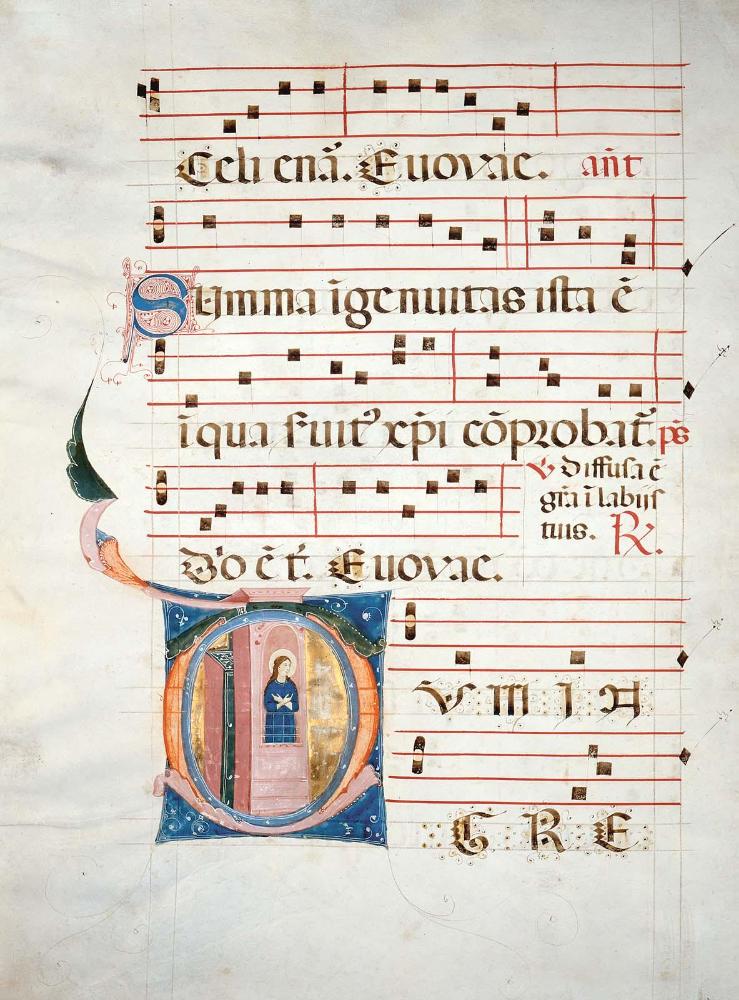 Celi enā. Euovae. añt
Summa īgenuitas ista ē
ī qua ẜuitꝰ xp̄i cōprobat᷑. ps̄
℣ Diffusa ē
gr̄a ī labijs
tuis. R⁊.
Euovae.
D V M I N
G R E